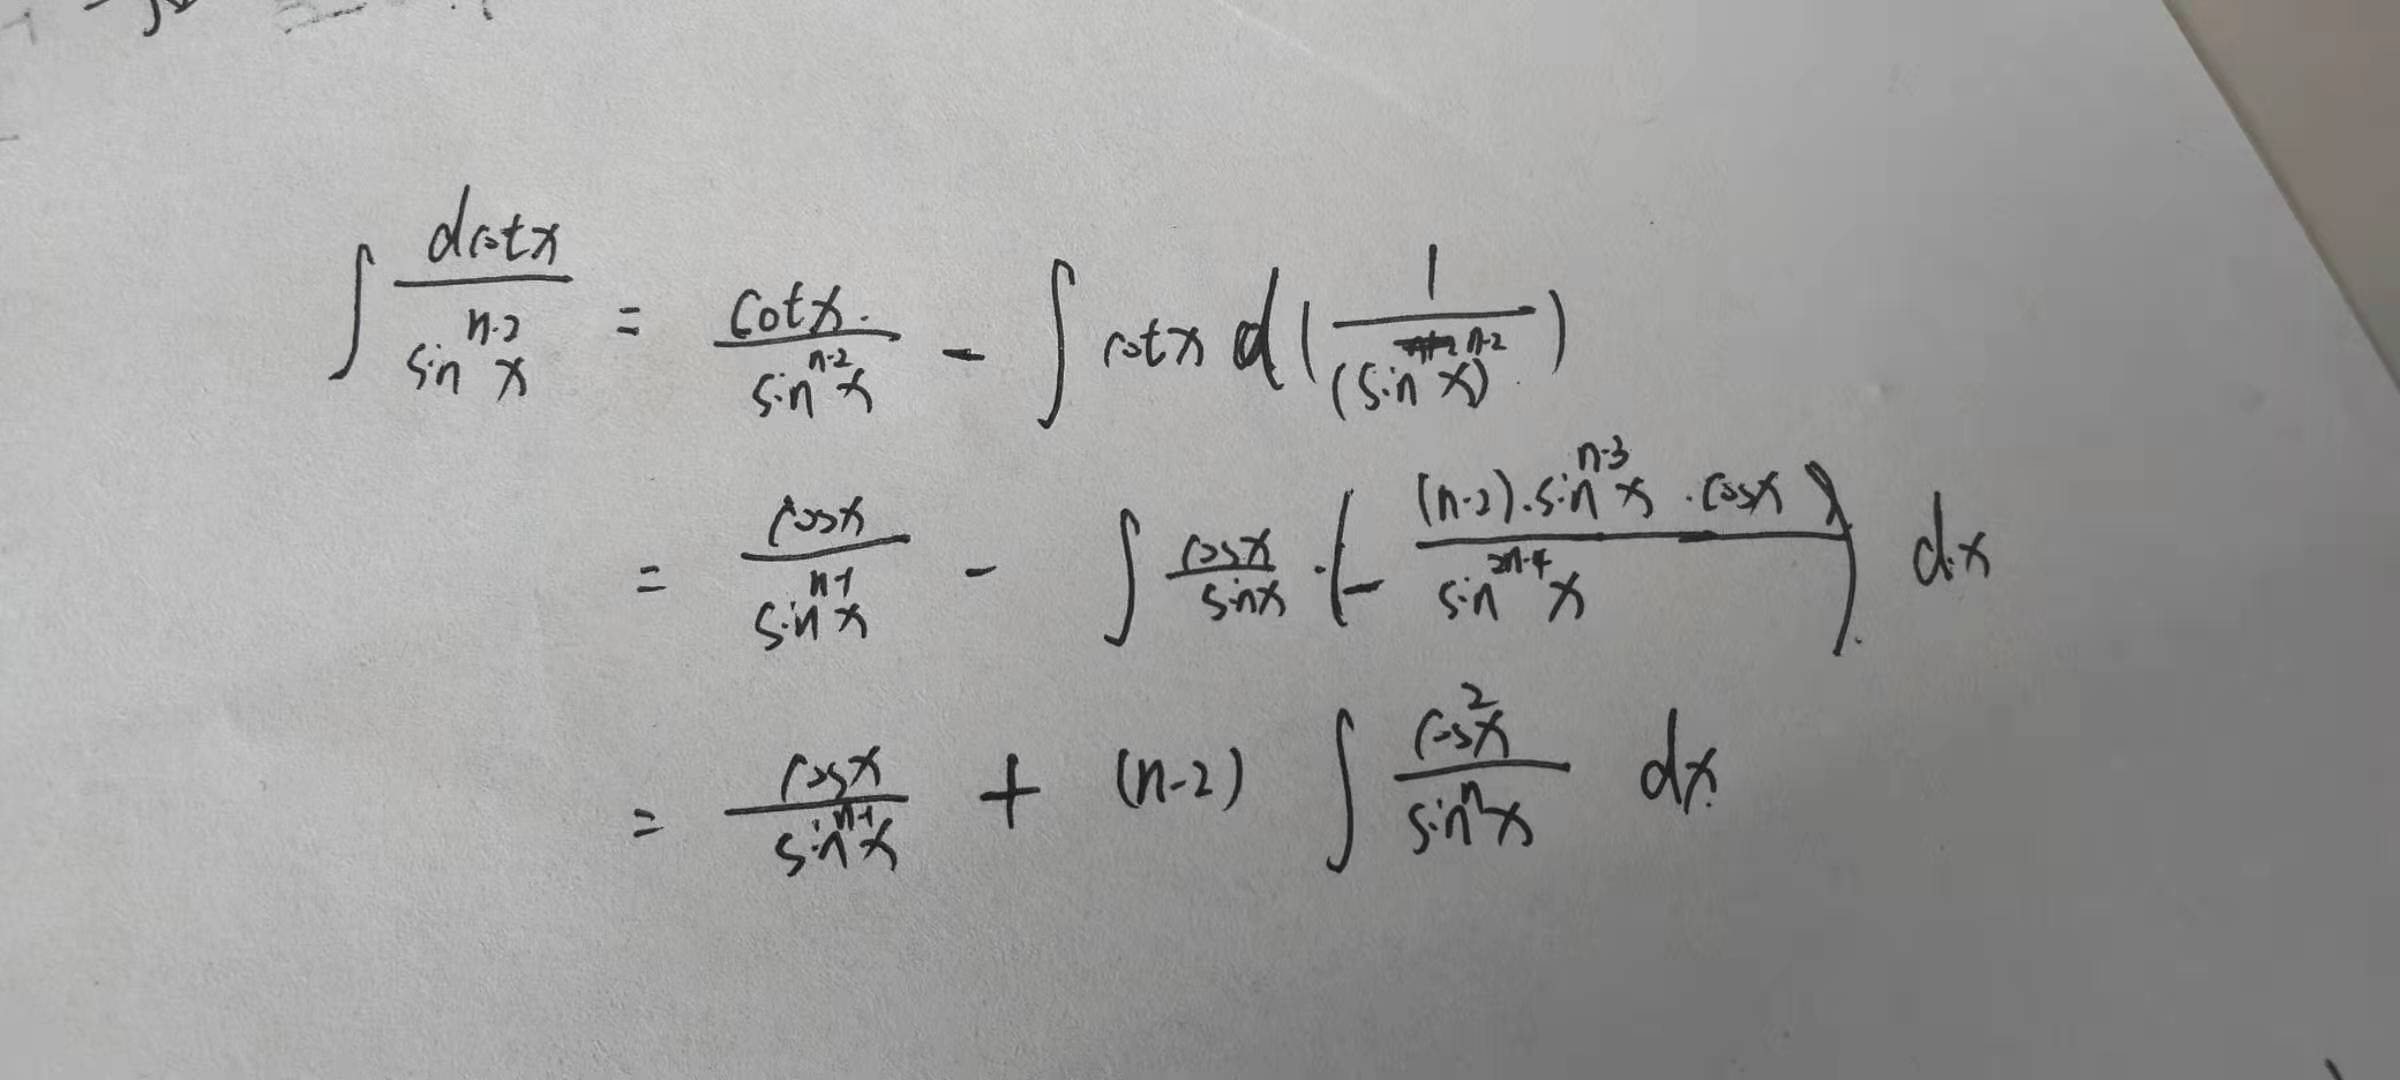 ∫ dcotx / sin^{n-2}x = cotx / sin^{n-2}x - ∫ cotx d( 1 / (sin x)^{n-2} )
= cosx / sin^{n-1}x - ∫ cosx / sinx · ( - (n-2)·sin^{n-3}x · cosx / sin^{2n-4}x ) dx
= cosx / sin^{n-1}x + (n-2) ∫ cos^2x / sin^nx dx